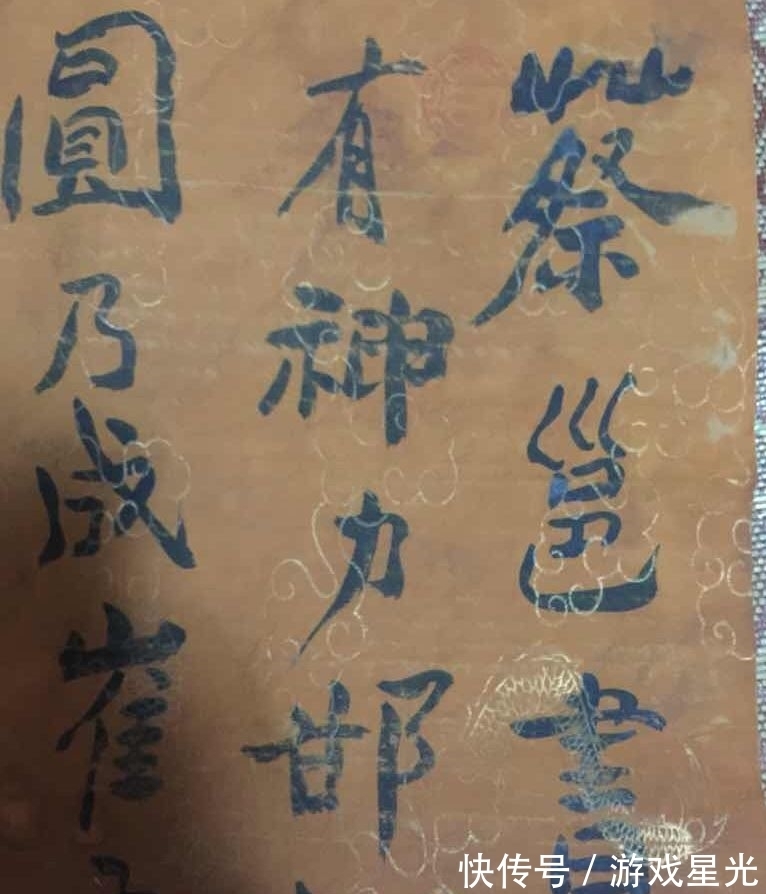 蔡邕書
有神力邯
圓乃成崔
快传号 / 游戏星光